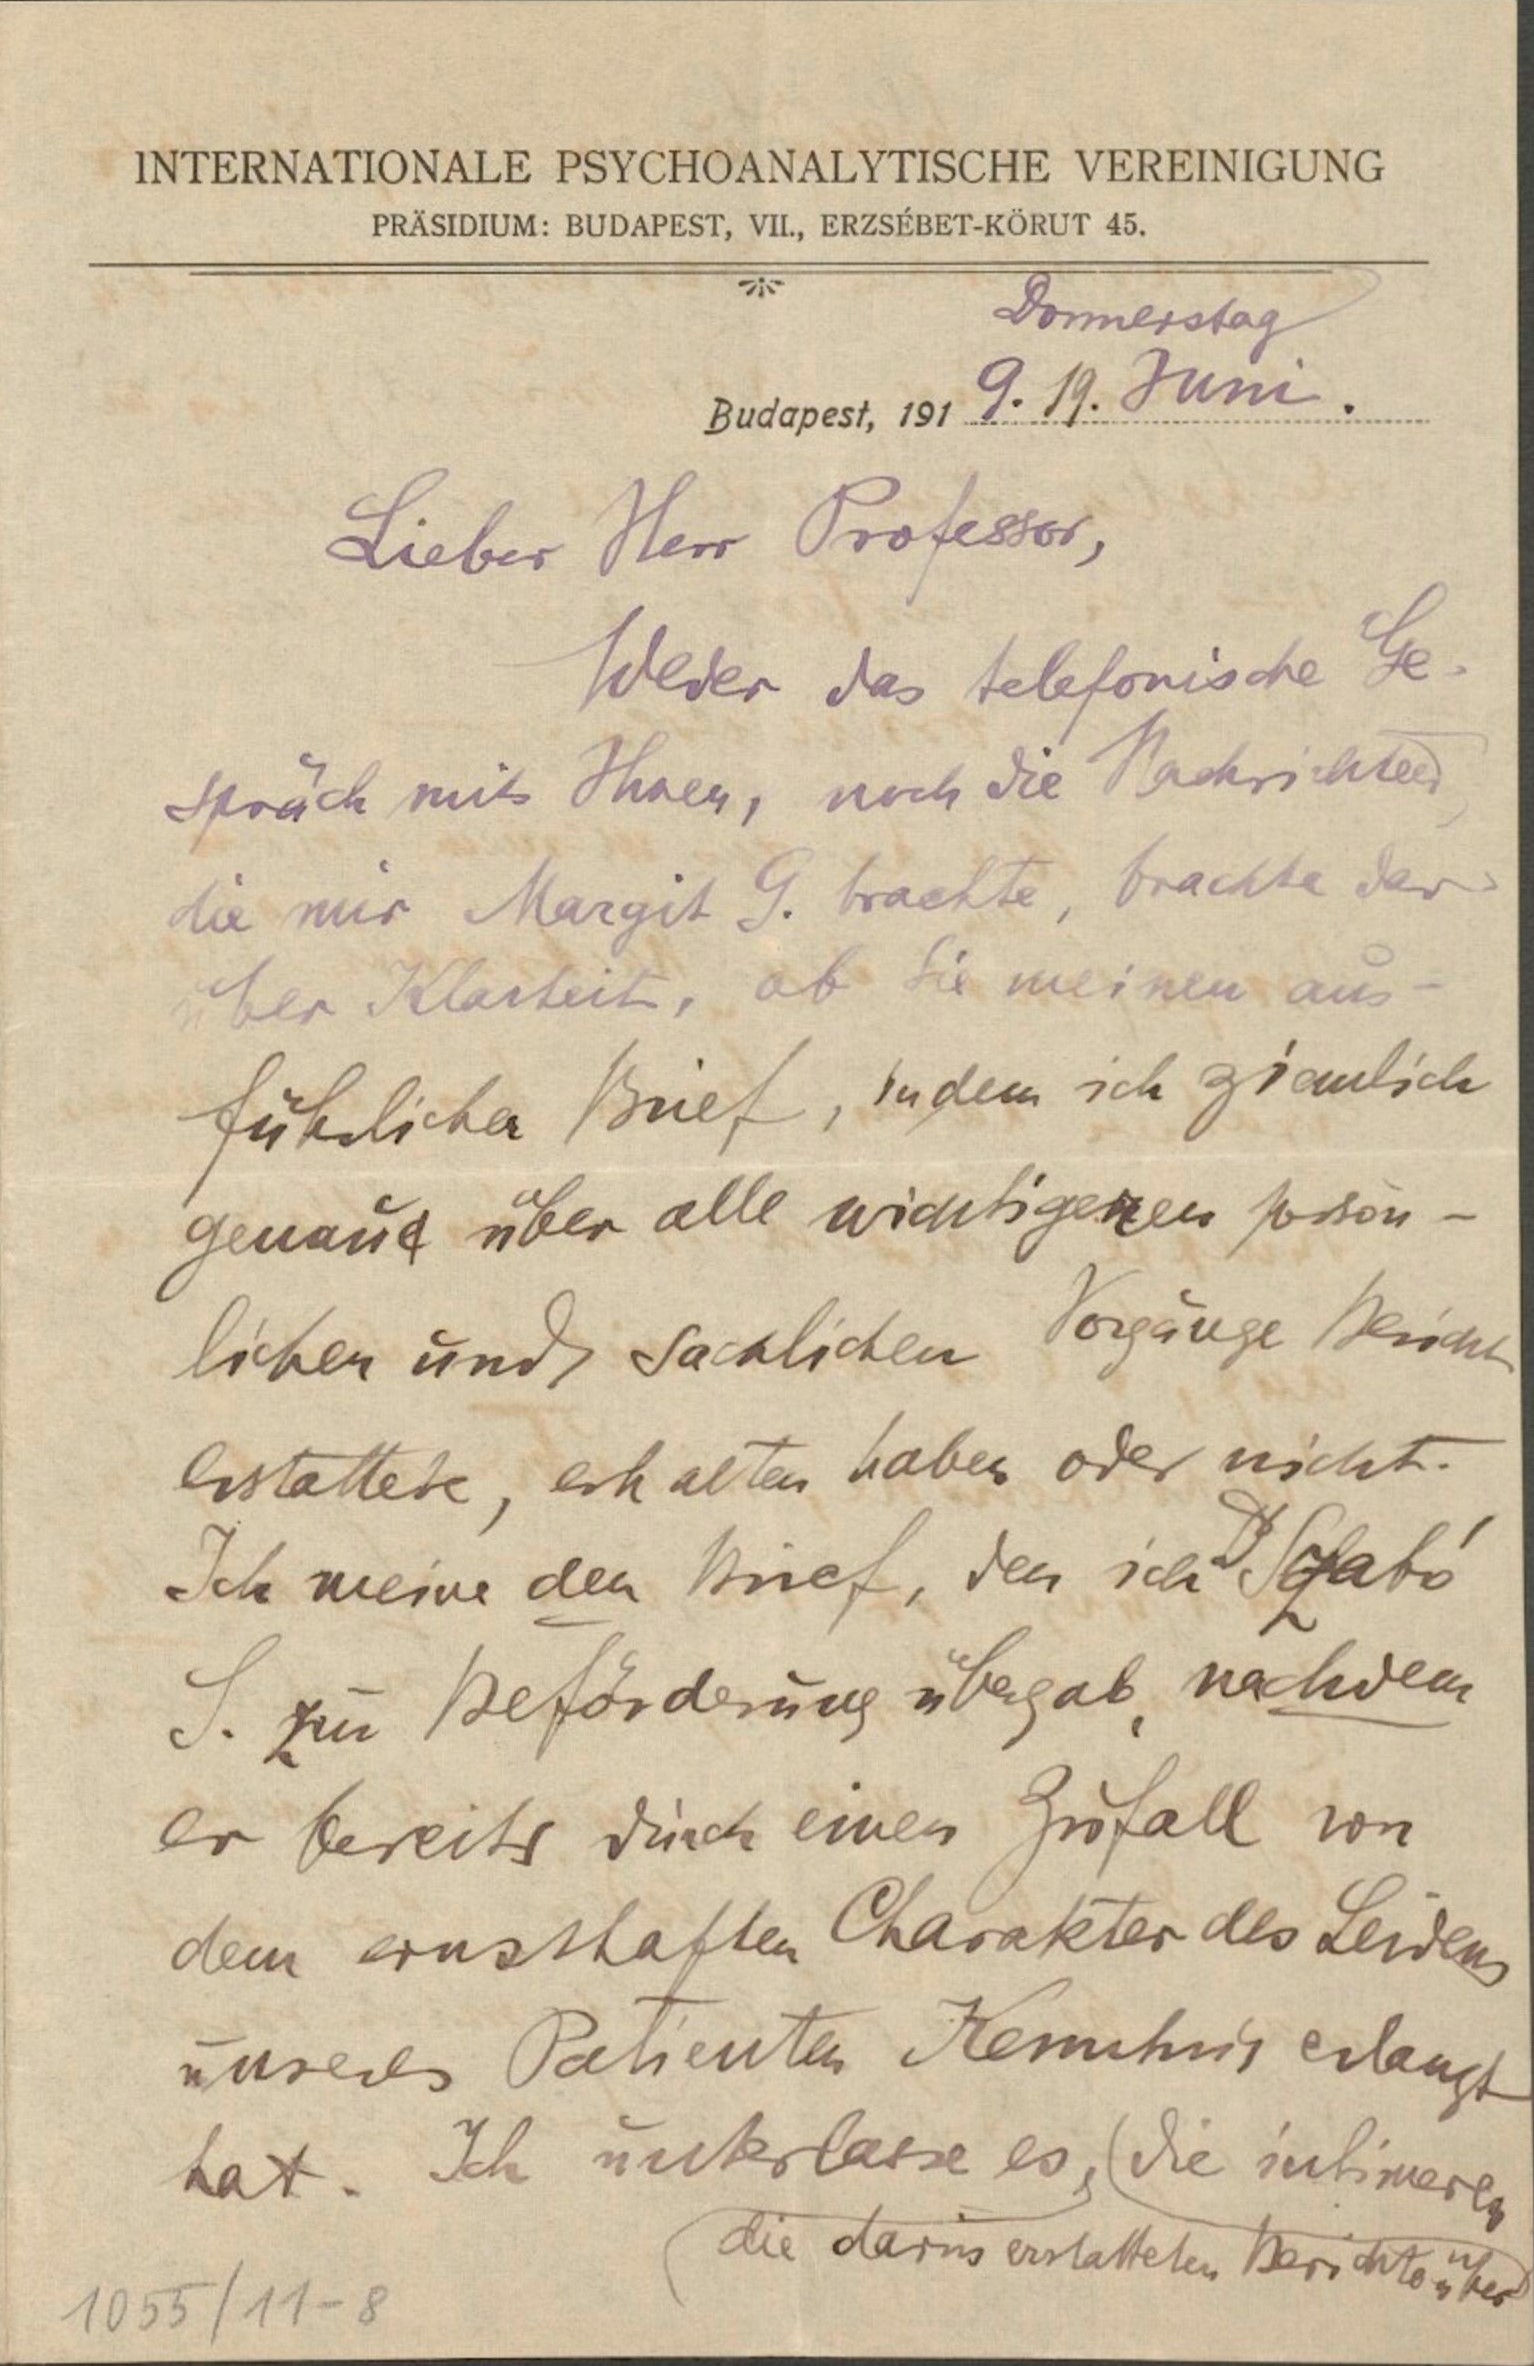 INTERNATIONALE PSYCHOANALYTISCHE VEREINIGUNG
PRÄSIDIUM: BUDAPEST, VII., ERZSÉBET-KÖRUT 45.
Donnerstag
Budapest, 191 9. 19. Juni.
Lieber Herr Professor,
Weder das telefonische Ge-
spräch mit Ihnen, noch die Nachrichten,
die mir Margit G. brachte, brachte dar-
über Klarheit, ob Sie meinen aus-
führlichen Brief, in dem ich ziemlich
genau über alle wichtigeren persön-
lichen und sachlichen Vorgänge Bericht
erstattete, erhalten haben oder nicht.
Ich meine den Brief, den ich Dr Szabó
S. zu Beförderung übergab, nachdem
er bereits durch einen Zufall von
dem ernsthaften Charakter des Leidens
unseres Patienten Kenntnis erlangt
hat. Ich unterlasse es, (die intimeren
die darin erstatteten Berichte über
1055/11-8